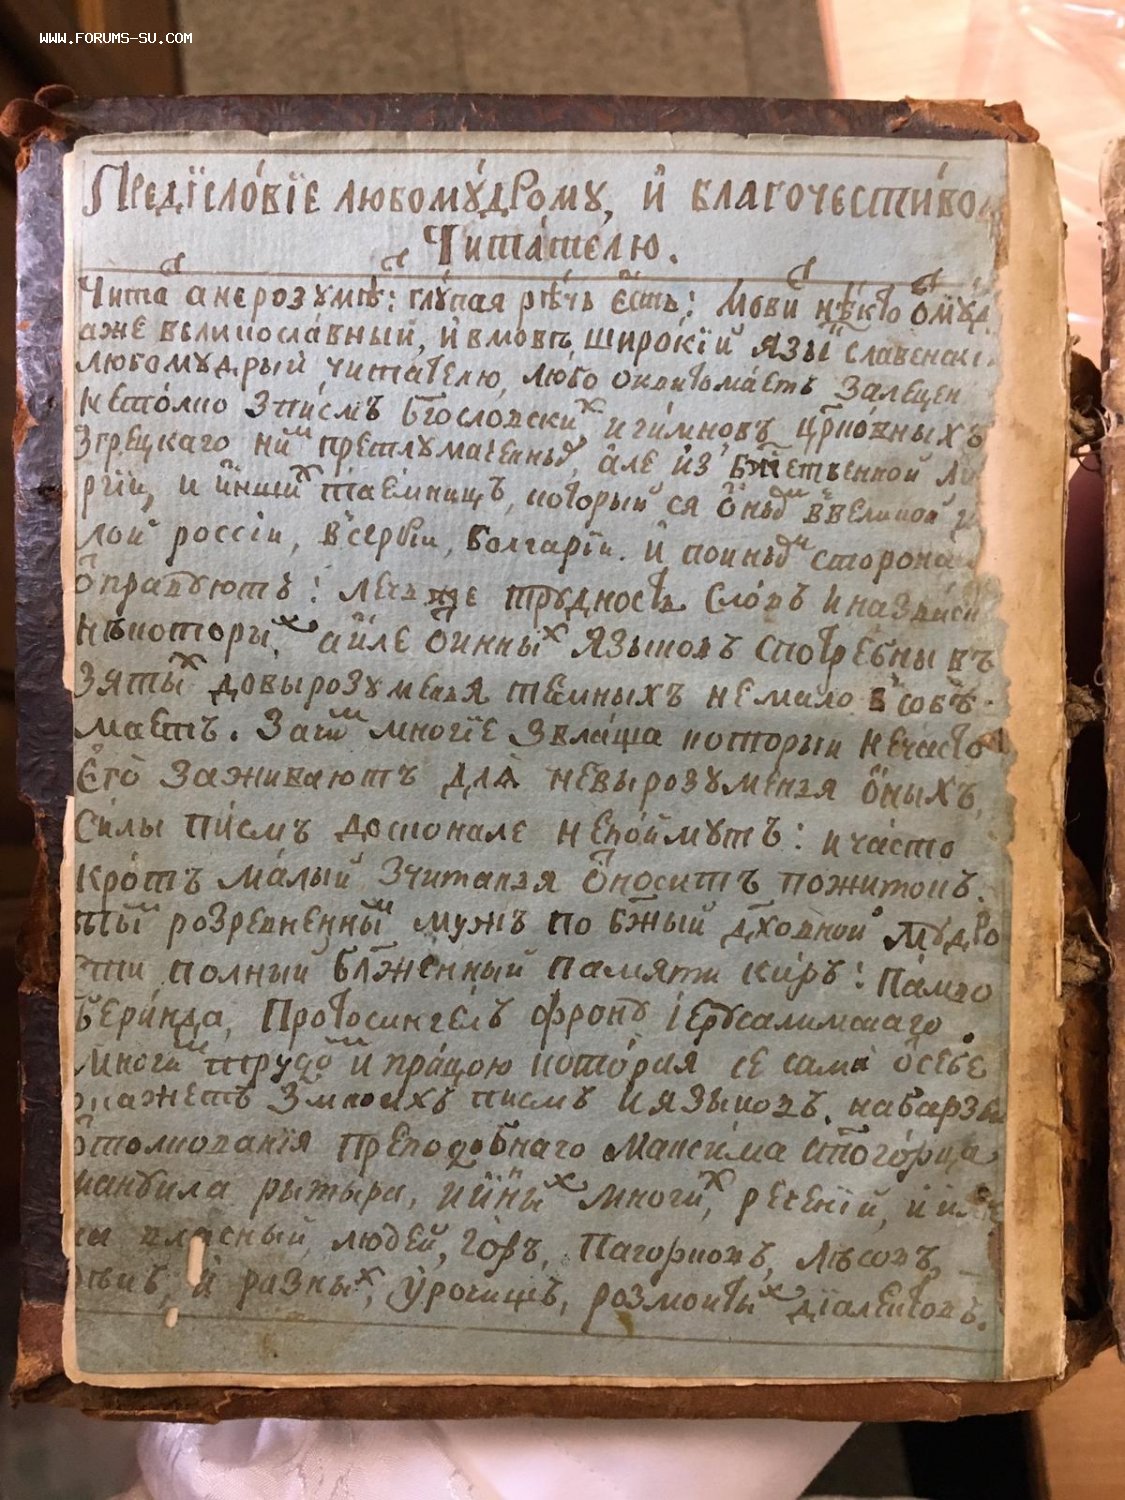 WWW.FORUMS-SU.COM
Предїсло́вїе любому́дрому, и҆ благочести́во
Чита́телю.
Чита а нерозумѣ: глу́пая рѣ́чь є҆сть: Мови нѣ́кто
аже велиосла́вный, и҆ вмовъ широ́кїй язы славенск
любомудрый читателю, любо
непо́лно зпи́смъ Бгословски и ги́мновъ црко́вныхъ
Згрецкаго ни претлумаченыъ, але и҆з бжественной Ли
рїи, и и҆нши таемницъ, который ся ѻ҆ны ввеликой
лой россїи, всербїи, Болгарїи. И҆ поины сторона
ѻ҆правуютъ: лечь же трудность сло́въ и назвиск
нѣкоторы, айле ѿ инны языковъ спотребны въ
Зяты довырозуменья темныхъ немало всобѣ
маетъ. Зачи многїе звла́ща которыи нечасто
Єго̀ заживаютъ для̀ невырозуме́нья ѻ҆ныхъ,
Си́лы пи́смъ досконале непо́ймутъ: и ча́сто
кро́тъ ма́лый зчитанья ѿноситъ пожитокъ.
розревненный мужъ по бж҃ый дхо́вной мудро
сти полный блаженный памяти ки́ръ: Па́мво
Бери́нда, Протосингелъ фрону і҆ерусалимскаго.
Многи трудо и҆ пра́цою кото́рая се сама ѡ҆себе
окажетъ змногихъ писмъ и языковъ. набарзѣ
ѿтолкованїя преподобнаго Макси́ма ст҃ого́рца,
мануила рытыра, и҆и҆ны многи, речени́й, и
власный, людей, го́ръ, пагорковъ, лѣсовъ,
и҆ разны, у҆рочищъ, розмоиты дїалектовъ.